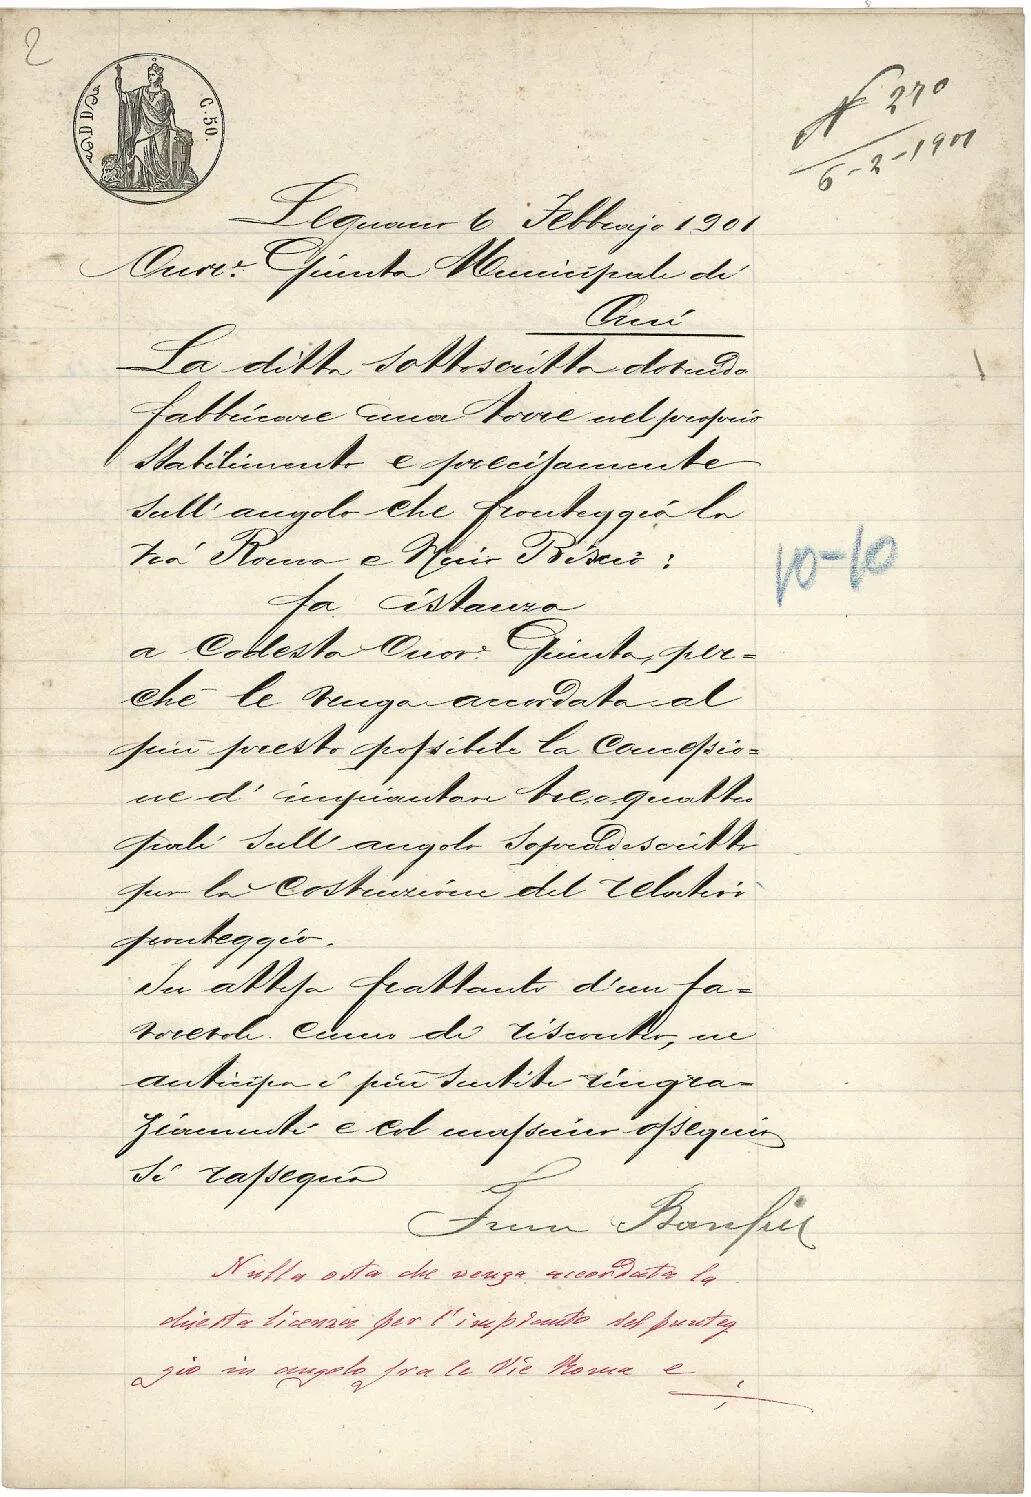 2
C. 50.
N 270
6-2-1901
Legnano 6 Febbrajo 1901
Onor.e Giunta Municipale di
La ditta sottoscritta dovendo
fabbricare una torre nel proprio
Stabilimento e precisamente
sull' angolo che fronteggia la
via Roma e Bixio:
10-10
fa istanza
a Codesta Onor.e Giunta, per=
chè le venga accordata al
più presto possibile la Concessio=
ne d' impiantare tre o quattro
pali sull' angolo sopradescritto
per la Costruzione del relativo
ponteggio.
In attesa frattanto d'un fa=
vorevole cenno di riscontro, ne
anticipa i più sentiti ringra=
ziamenti e col massimo ossequio
si rassegna
Banfi
Nulla osta che venga accordata la
chiesta licenza per l'impianto del ponteg
gio in angolo fra le Vie Roma e